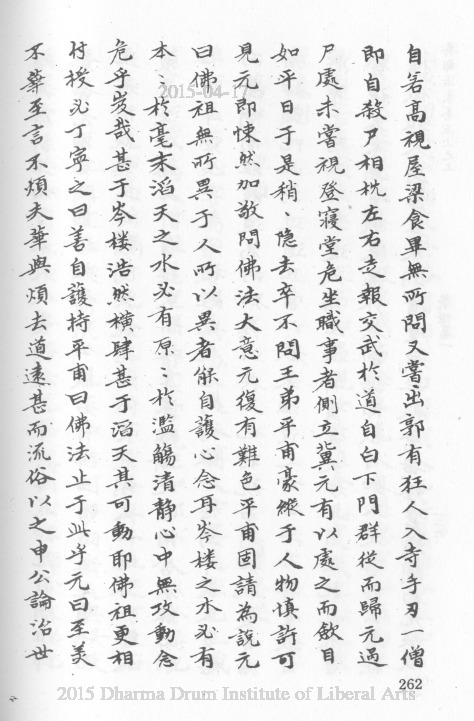 自若高視屋梁食畢無所問又嘗出郭有狂人入寺手刃一僧
即自殺尸相枕左右走報交武於道自白下門群從而歸元過
尸處未嘗視登寢堂危坐職事者側立冀元有以處之而斂目
如平日于是稍、隐去卒不問王弟平甫豪縱于人物慎許可
見元即悚然加敬問佛法大意元復有難色平甫固請為說元
曰佛祖無所異于人所以異者能自護心念耳岑樓之木必有
本：於毫末滔天之水必有原：於濫觴清静心中無攻動念
危乎岌哉甚于岑楼浩然横肆甚于滔天其可動耶佛祖更相
付授必丁寧之曰善自護持平甫曰佛法止于此乎元曰至美
不華至言不煩夫華與煩去道遠甚而流俗以之申公論治世
262
2015-04-17
2015 Dharma Drum Institute of Liberal Arts